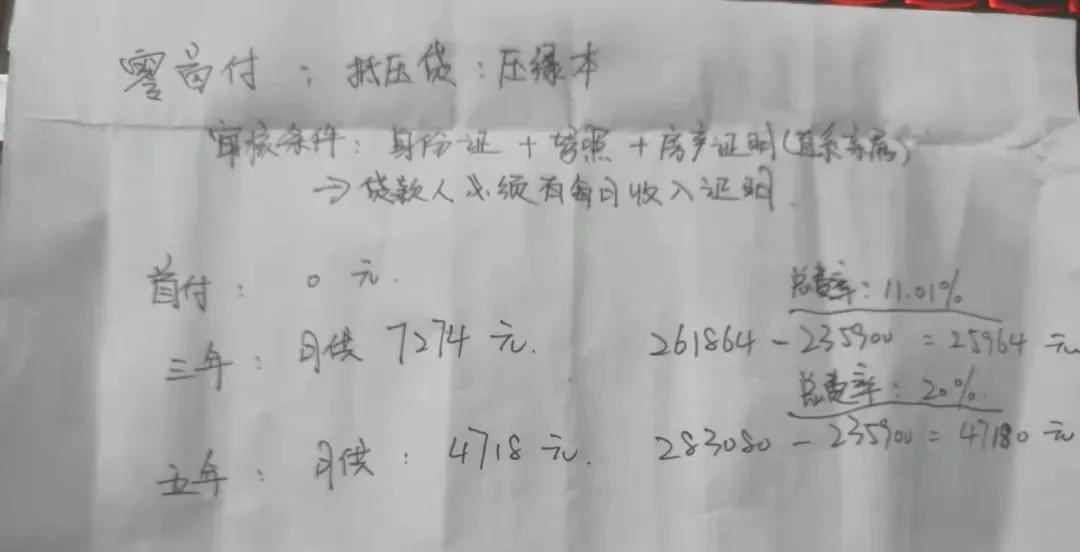 零首付; 抵压贷: 压绿本
审核条件: 身份证 + 驾照 + 房产证明(直系亲属)
→ 贷款人必须有每月收入证明.
首付: 0 元.
总费率: 11.01%
三年: 月供 7274 元. 261864 - 235900 = 25964 元
总费率: 20%.
五年: 月供: 4718 元. 283080 - 235900 = 47180 元